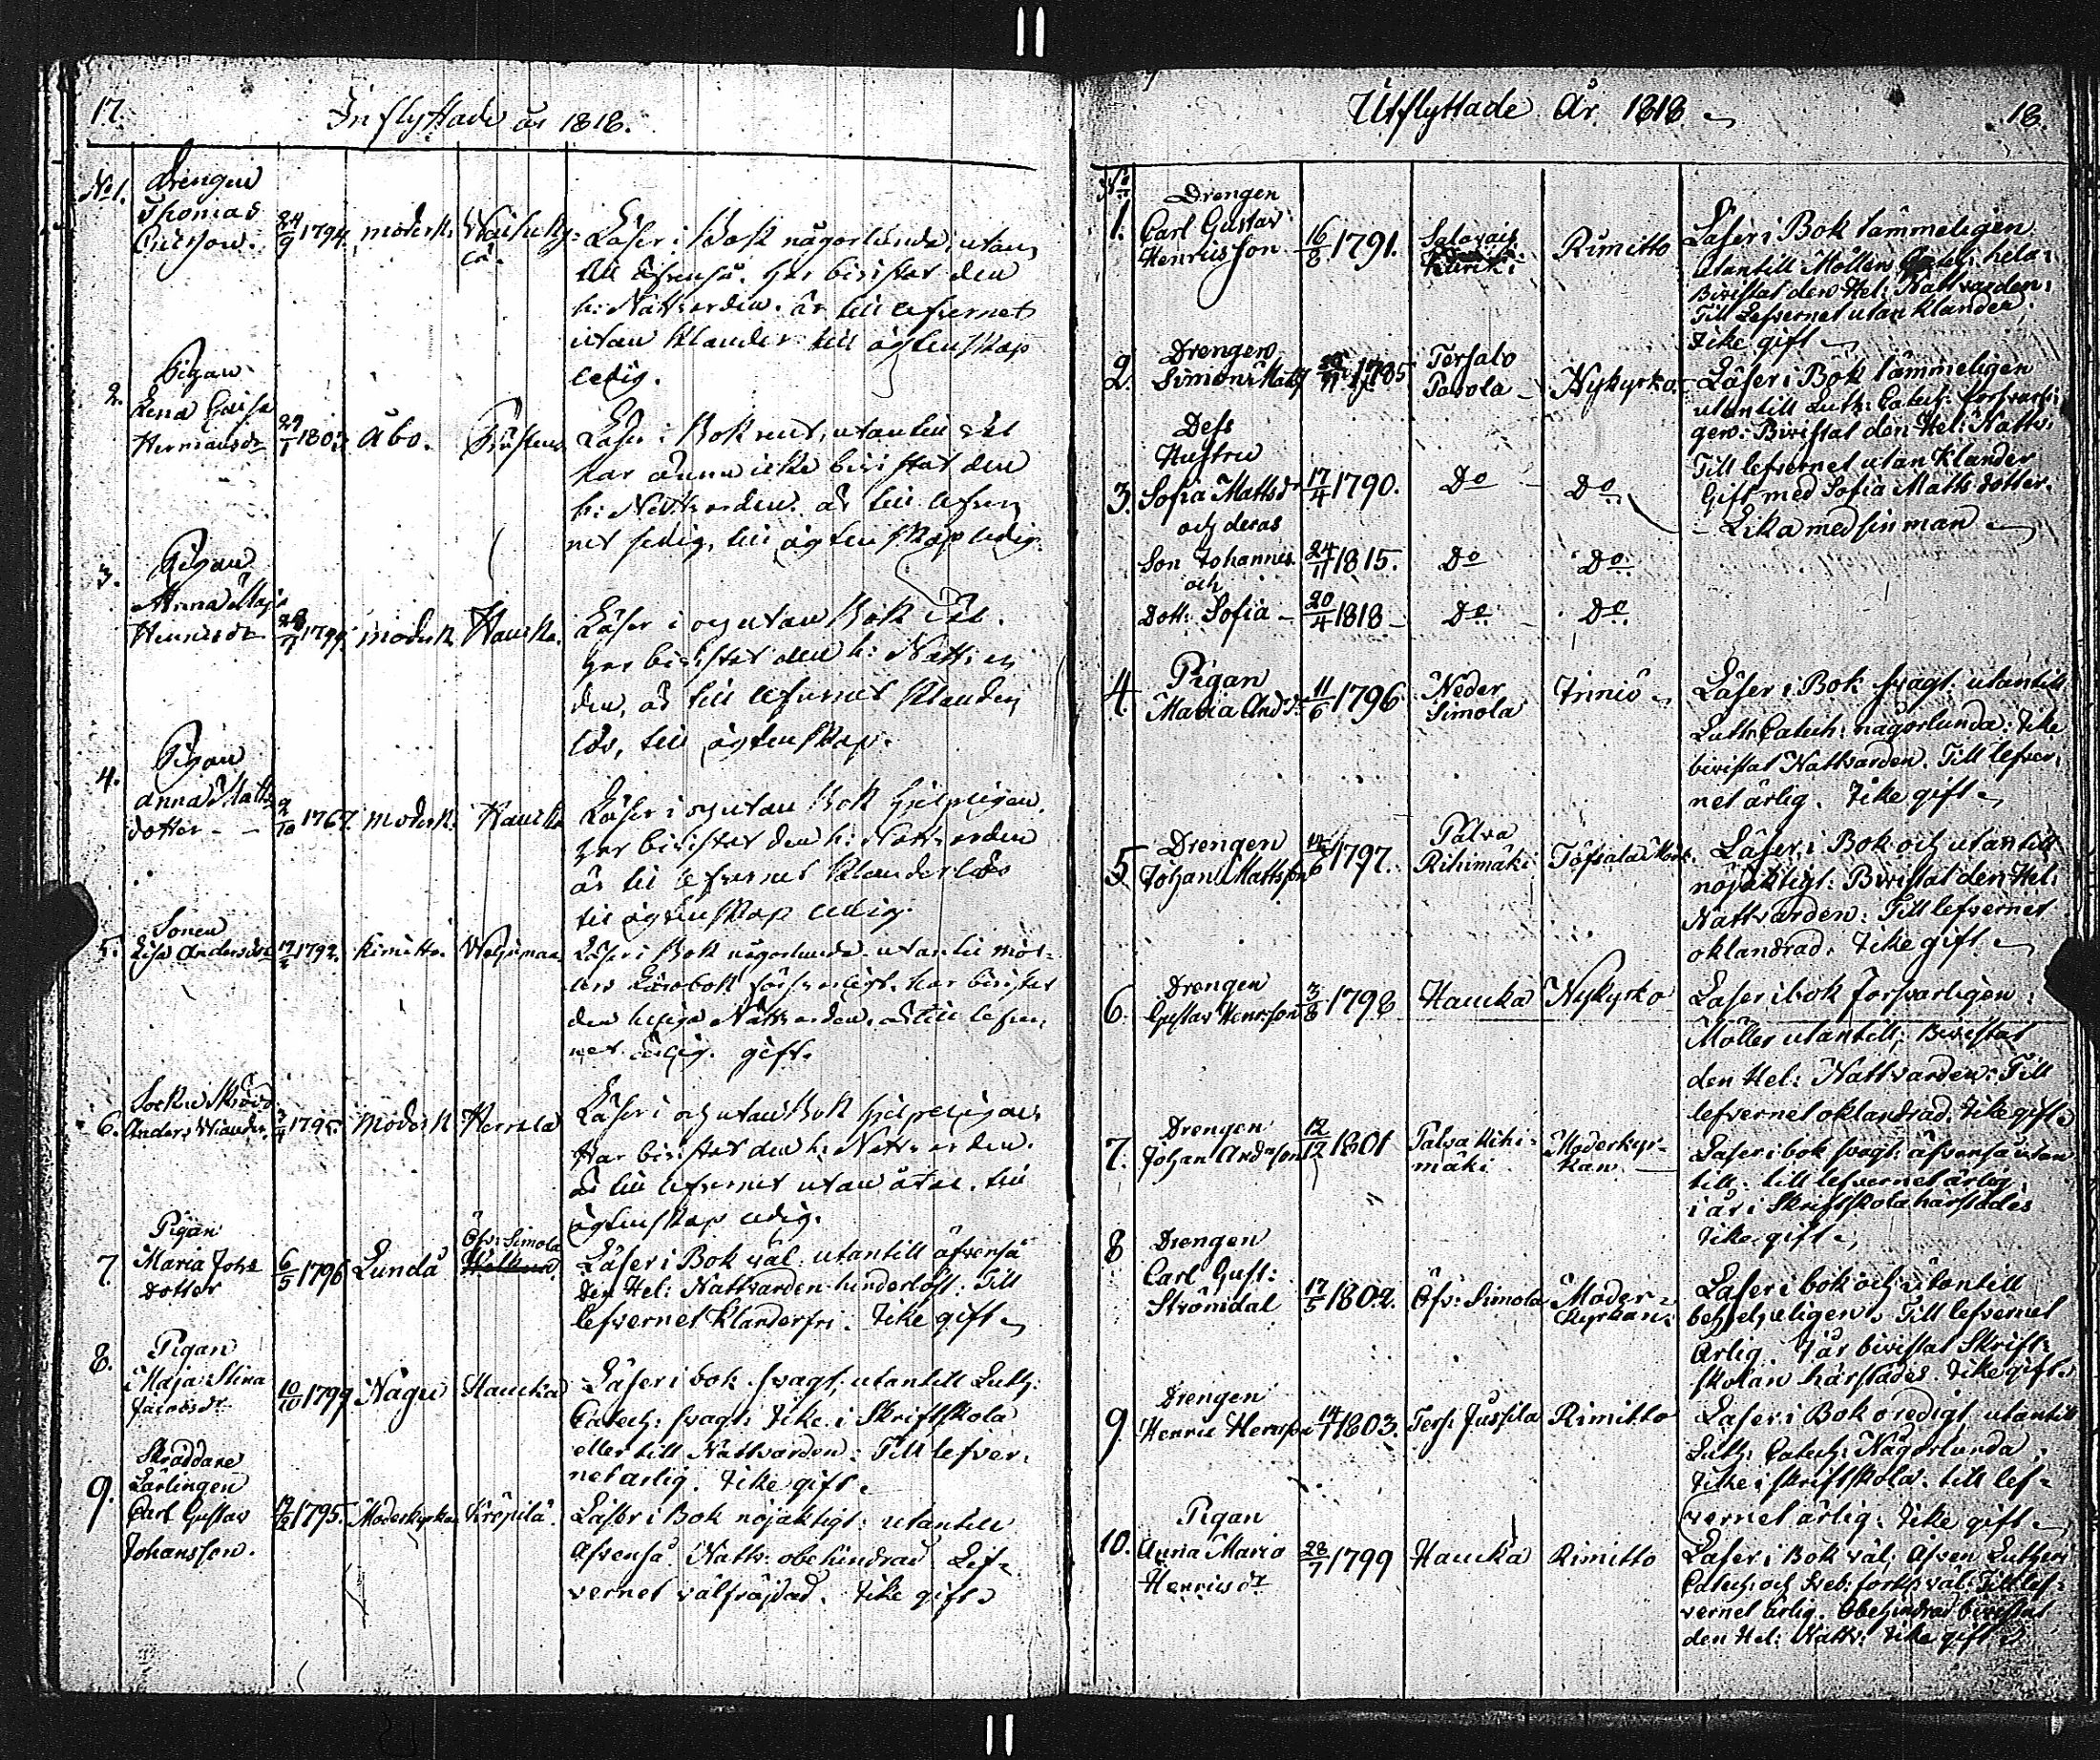 17.
Inflyttade år 1818.
No 1.
Drengen
Thomas
24/9 1794. moderk.
Läser i Bok någorlunda, utan
till äfvenså. har bivistat den
h: Nattvarden. är till lefvernet
utan klander till ägtenskap
ledig.
2.
Pigan
Lena Caisa
Hermansdr
Åbo.
Läser i Bok rent, utantill väl
har ännu icke bivistat den
h: Nattvarden. är till lefver
net sedig, till ägtenskap ledig.
3.
Pigan
Anna Maja
Henricsdr
moderk. Haucka.
Läser i och utan Bok väl.
har bivistat den h: Nattvar
den, är till lefvernet klander
lös, till ägtenskap.
4.
Pigan
Anna Matts
dotter - - 9/10 1767. moderk. Haucka
Läser i och utan Bok hjelpligen.
har bivistat den h: Nattvarden
är till lefvernet klanderlös
till ägtenskap ledig.
5.
Sonen
Andersson 1792. Kimitto.
Läser i Bok någorlunda utantill Möl-
lers Lärobok försvarligt. har bivistat
den heliga Nattvarden. är till lefver
net ärlig. gift.
6.
Sockn Skrädd
Anders Wiander. 1795. moderk Herrala
Läser i och utan Bok hjelpeligen
har bivistat den h: Nattvarden.
är till lefvernet utan åtal. till
ägtenskap ledig.
7.
Pigan
Maria Johs
dotter
6/5 1796 Lundå
Öfv: Simola
Läser i Bok väl utantill äfvenså
Den Hel: Nattvarden hinderlöst: Till
lefvernet klanderfri. Icke gift
8.
Pigan
Maja Stina
Jacobsdr
10/10 1799 Nagu Haucka
Läser i bok svagt, utantill Luth:
Catech: svagt: Icke i Skriftskola
eller till Nattvarden: Till lefver-
net ärlig. Icke gift
9.
Skräddare
Lärlingen
Carl Gustav
Johansson.
1795. Moderkyrkan
Läser i Bok nöjaktigt: utantill
äfvenså. Nattv: obehindrad Lef-
vernet välfräjdad. Icke gift
Utflyttade År 1818
18.
No
1.
Drengen
Carl Gustav
Henricsson
16/8 1791. Salavais
Kuriki
Rimitto
Läser i Bok tämmeligen
utantill Möllers Catech: hela:
Bivistat den Hel: Nattvarden:
Till Lefvernet utan klander,
Icke gift
2.
Drengen
Simon Matts
1785
Tersalo
Pavola
Nykyrko.
Läser i Bok tämmeligen
utantill Luth: Catech: försvarli-
gen: Bivistat den Hel: Nattv:
Till lefvernet utan klander
Gift med Sofia Matts dotter.
Dess
Hustru
3. Sofia Mattsdr 17/4 1790. Do Do
- Lika med sin man
och deras
Son Johannes 24/11 1815. Do Do
och
Dott: Sofia 20/4 1818 Do Do
4
Pigan
Maria Andsdr 11/6 1796
Neder
Simola
Läser i Bok svagt: utantill
Luth: Catech: någorlunda: Icke
bivistat Nattvarden. Till lefver-
net ärlig. Icke gift
5
Drengen
Johan Mattsson
1797.
Palva
Rihimäki
Töfsala Mod.
Läser i Bok och utantill
nöjaktigt: Bivistat den Hel:
Nattvarden: Till lefvernet
oklandrad. Icke gift.
6
Drengen
Gustav Henrsson 3/8 1798 Haucka Nykyrko
Läser i bok försvarligen:
Möller utantill, Bivistat
den Hel: Nattvarden: Till
lefvernet oklandrad. Icke gift
7.
Drengen
Johan Andsson 12/12 1801 Palva Rihi-
mäki
Moderkyr-
kan
Läser i bok svagt: äfvenså utan
till: till lefvernet ärlig,
i år i Skriftskola härstädes
Icke gift
8
Drengen
Carl Gust:
Strömdal
17/5 1802. Öfv: Simola
Moder-
kyrkan
Läser i bok och utantill
behjelpeligen. Till lefvernet
Ärlig. I år bivistat Skrift-
skolan härstädes. Icke gift
9
Drengen
Henric Henrsson 1803. Ters: Jussila Rimitto
Läser i Bok oredigt, utantill
Luth: Catech: Någorlunda,
Icke i skriftskola. till lef-
vernet ärlig. Icke gift
10.
Pigan
Anna Maria
Henricsdr
28/7 1799 Haucka Rimitto
Läser i Bok väl, Äfven Luthers
Catech: och Sveb: förkl: väl: Till lef-
vernet ärlig. Obehindrad bivistat
den Hel: Nattv: Icke gift